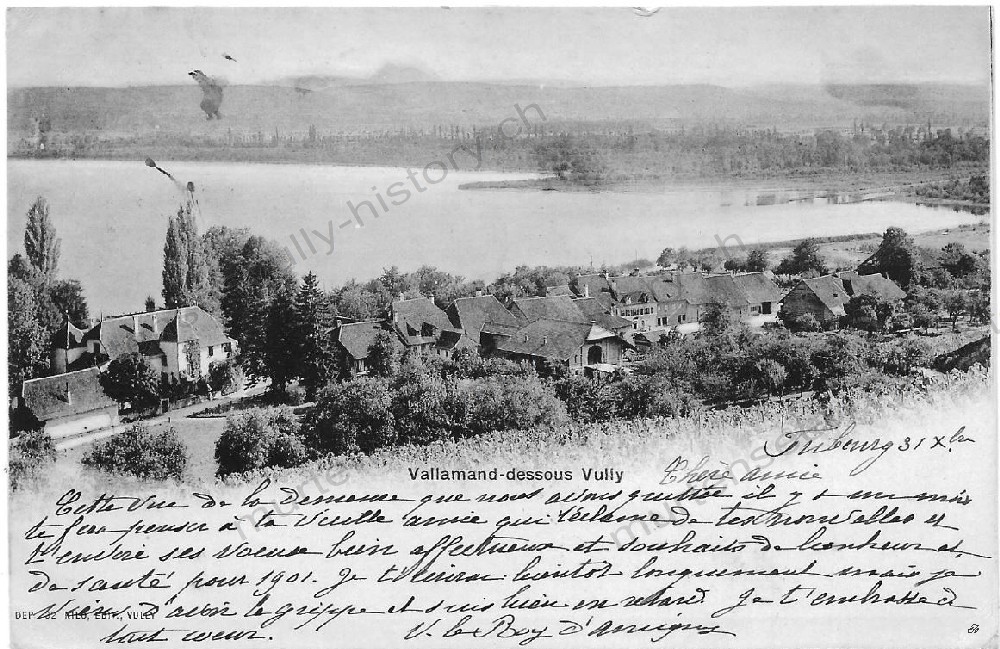 murten-vully-history.ch
Fribourg 31 Xbr
Vallamand-dessous Vully
Chère amie
Cette vue de la Demeure que nous avons quittée il y a un mois
te fera penser à ta vieille amie qui réclame de tes nouvelles et
t'envoie ses voeux bien affectueux et souhaits de bonheur et
de santé pour 1901. Je t'écrirai bientôt longuement mais je
viens d'avoir la grippe et suis bien en retard. Je t'embrasse de
tout coeur. V. le Roy d'
EDIT. VULLY